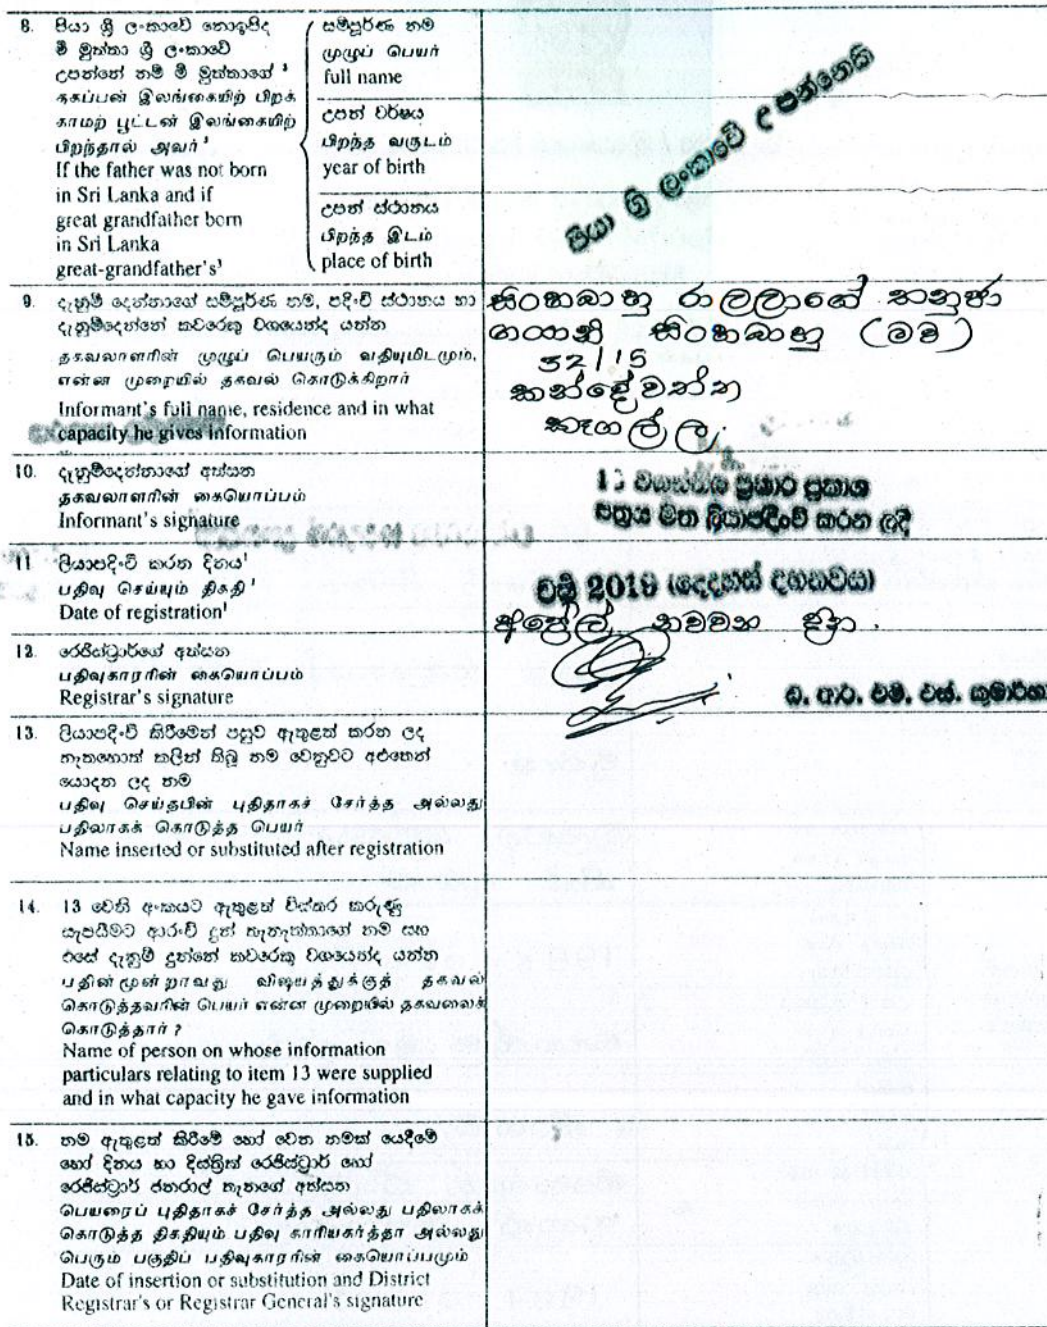 8. පියා ශ්‍රී ලංකාවේ නොඉපිද
මී මුත්තා ශ්‍රී ලංකාවේ
උපන්නේ නම් මී මුත්තාගේ ³
தகப்பன் இலங்கையிற் பிறக்
காமற் பூட்டன் இலங்கையிற்
பிறந்தால் அவர் ³
If the father was not born
in Sri Lanka and if
great grandfather born
in Sri Lanka
great-grandfather's³
සම්පූර්ණ නම
முழுப் பெயர்
full name
උපන් වර්ෂය
பிறந்த வருடம்
year of birth
උපන් ස්ථානය
பிறந்த இடம்
place of birth
පියා ශ්‍රී ලංකාවේ උපන්නෙකි
9. දැනුම් දෙන්නාගේ සම්පූර්ණ නම, පදිංචි ස්ථානය හා
දැනුම්දෙන්නේ කවරෙකු වශයෙන්ද යන්න
தகவலாளரின் முழுப் பெயரும் வதியுமிடமும்,
என்ன முறையில் தகவல் கொடுக்கிறார்
Informant's full name, residence and in what
capacity he gives information
සිංහබාහු රාලලාගේ තනුජා
ගයානි සිංහබාහු (මව)
32/15
කන්දේවත්ත
කෑගල්ල.
10. දැනුම්දෙන්නාගේ අත්සන
தகவலாளரின் கையொப்பம்
Informant's signature
ප්‍රකාර ප්‍රකාශ
පත්‍රය මත ලියාපදිංචි කරන ලදී
11. ලියාපදිංචි කරන දිනය¹
பதிவு செய்யும் திகதி ¹
Date of registration¹
වර්ෂ 2019 (දෙදහස් දහනවය)
අප්‍රේල් නවවන දින.
12. රෙජිස්ට්‍රාර්ගේ අත්සන
பதிவுகாரரின் கையொப்பம்
Registrar's signature
ඩී. ආර්. එම්. එස්. කුමාරිහා
13. ලියාපදිංචි කිරීමෙන් පසුව ඇතුළත් කරන ලද
නැතහොත් කලින් තිබූ නම වෙනුවට අළුතෙන්
යොදන ලද නම
பதிவு செய்தபின் புதிதாகச் சேர்த்த அல்லது
பதிலாகக் கொடுத்த பெயர்
Name inserted or substituted after registration
14. 13 වෙනි අංකයට ඇතුළත් විස්තර කරුණු
සැපයීමට ආරංචි දුන් තැනැත්තාගේ නම සහ
එසේ දැනුම් දුන්නේ කවරෙකු වශයෙන්ද යන්න
பதின்மூன்றாவது விஷயத்துக்குத் தகவல்
கொடுத்தவரின் பெயர் என்ன முறையில் தகவலைக்
கொடுத்தார் ?
Name of person on whose information
particulars relating to item 13 were supplied
and in what capacity he gave information
15. නම ඇතුළත් කිරීමේ හෝ වෙන නමක් යෙදීමේ
හෝ දිනය හා දිස්ත්‍රික් රෙජිස්ට්‍රාර් හෝ
රෙජිස්ට්‍රාර් ජනරාල් තැනගේ අත්සන
பெயரைப் புதிதாகச் சேர்த்த அல்லது பதிலாகக்
கொடுத்த திகதியும் பதிவு காரியகர்த்தா அல்லது
பெரும் பகுதிப் பதிவுகாரரின் கையொப்பமும்
Date of insertion or substitution and District
Registrar's or Registrar General's signature